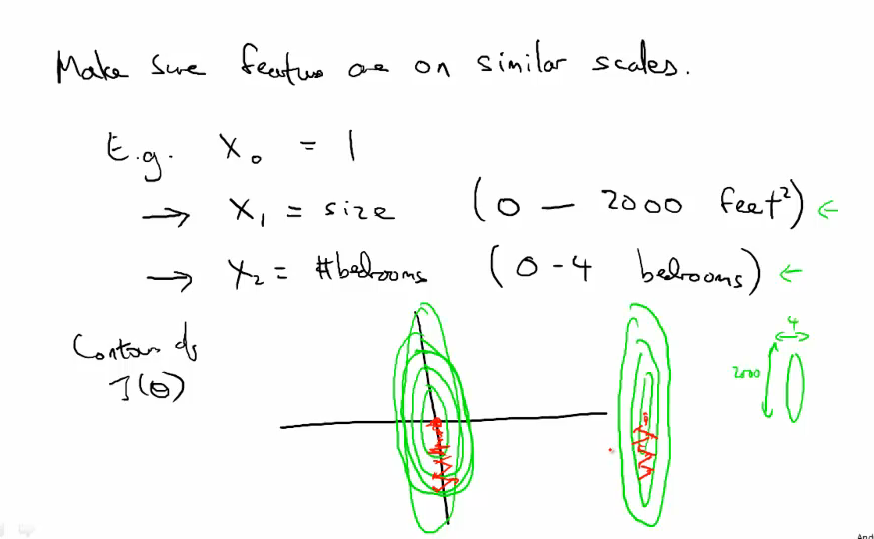 Make sure feature are on similar scales.
E.g. x₀ = 1
→ x₁ = size (0 — 2000 feet²) ←
→ x₂ = #bedrooms (0-4 bedrooms) ←
4
2000
Contours of
J(θ)
And